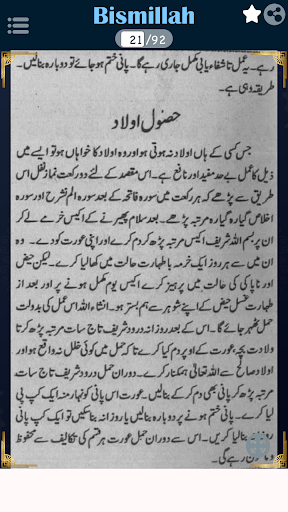 Bismillah
21/92
رہے۔ یہ عمل تا شفا یابی مکمل جاری رہے گا۔ پانی ختم ہو جائے تو دوبارہ بنالیں۔
طریقہ وہی ہے۔
حصول اولاد
جس کسی کے ہاں اولاد نہ ہوتی ہو اور وہ اولاد کا خواہاں ہو تو ایسے میں
ذیل کا عمل بے حد مفید اور نافع ہے۔ اس مقصد کے لئے دو رکعت نماز نفل اس
طریق سے پڑھے کہ ہر رکعت میں سورہ فاتحہ کے بعد سورہ الم نشرح اور سورہ
اخلاص گیارہ گیارہ مرتبہ پڑھے۔ بعد سلام پھیرنے کے اکیس خرمے لے کر
ان پر بسم اللہ شریف اکیس مرتبہ پڑھ کر دم کرے اور اپنی عورت کو دے۔ وہ
ان میں سے ہر روز ایک خرمہ با طہارت حالت میں کھا لیا کرے۔ لیکن حیض
اور ناپاکی کی حالت میں پرہیز کرے اکیس یوم مکمل ہونے پر اور از
طہارت غسل حیض کے اپنے شوہر سے ہم بستر ہو۔ انشاء اللہ اس عمل کی بدولت
حمل ٹھہر جائے گا۔ اس کے بعد روزانہ درود شریف تاج سات مرتبہ پڑھ کر تا
ولادت بچہ عورت کے اوپر دم کیا کرے تا کہ حمل میں کوئی خلل نہ واقع ہو اور
اولاد صالح سے اللہ تعالیٰ ہمکنار کرے۔ دوران حمل درود شریف تاج سات
مرتبہ پڑھ کر پانی بھی دم کر کے بنالیں۔ عورت اس پانی کو نہار منہ ایک کپ پی لیا
کرے۔ پانی ختم ہونے پر دوبارہ بنالیں یا روزانہ بنا کیں تو ایک کپ پانی
روزانہ بنا لیا کریں۔ اس سے دوران حمل عورت ہر قسم کی تکالیف سے محفوظ
رہے گی۔